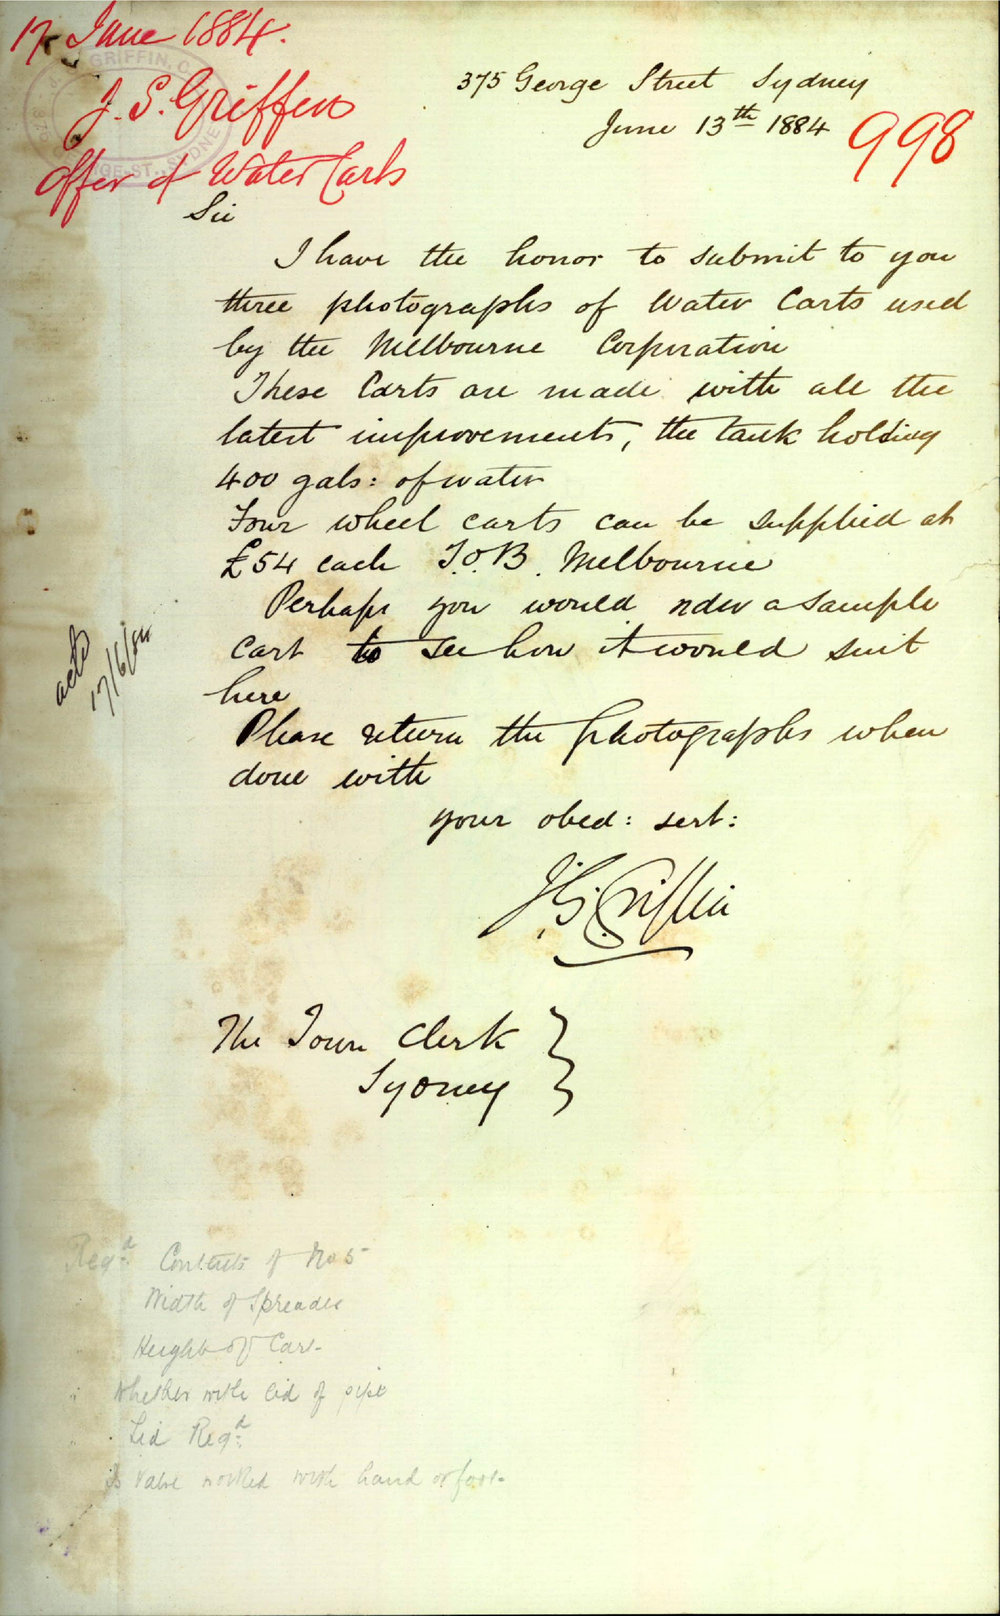 17 June 1884.
J. S. Griffin
Offer of Water Carts
GRIFFIN, C
ST., SYDNEY
375 George Street Sydney
June 13th 1884
998
Sir
I have the honor to submit to you
three photographs of Water Carts used
by the Melbourne Corporation
These Carts are made with all the
latest improvements, the tank holding
400 gals: of water
Four wheel carts can be supplied at
£54 each F.O.B. Melbourne
Perhaps you would order a sample
cart to see how it would suit
here
Please return the photographs when
done with
your obed: sert:
J. S. Griffin
The Town Clerk
Sydney
17/6/84
Reqd Contents of No 5
Width of Spreader
Height of Cart
Whether with lid of pipe
Lid Reqd
Is Valve worked with hand or foot